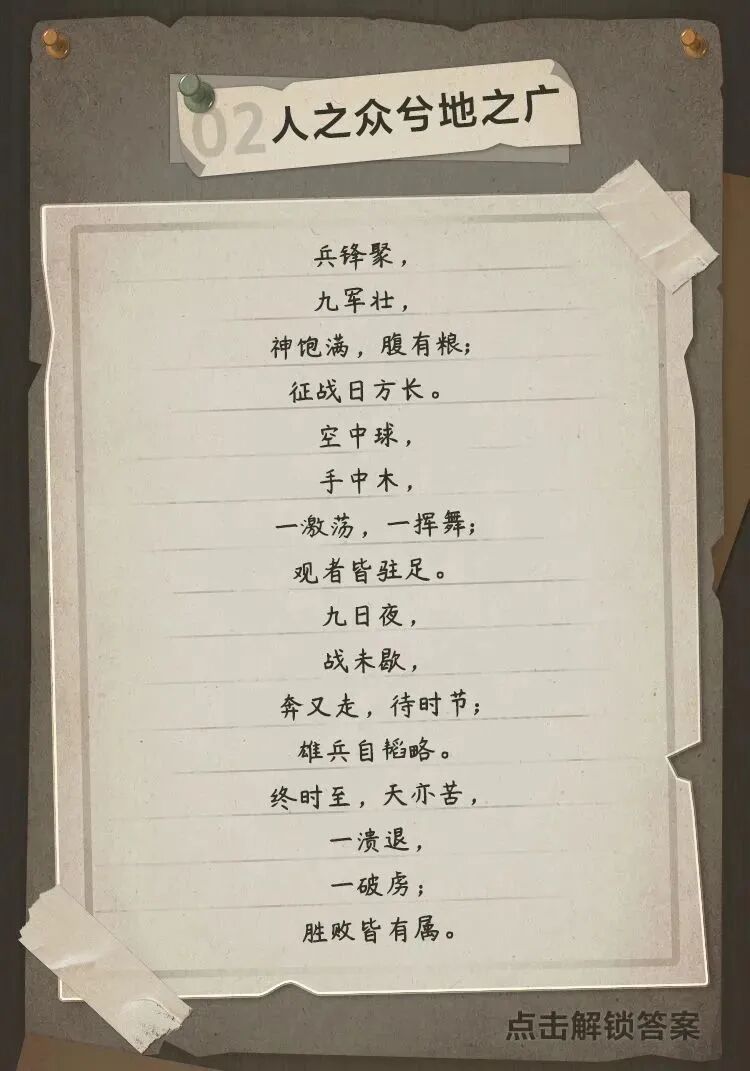 02 人之众兮地之广
兵锋聚，
九军壮，
神饱满，腹有粮；
征战日方长。
空中球，
手中木，
一激荡，一挥舞；
观者皆驻足。
九日夜，
战未歇，
奔又走，待时节；
雄兵自韬略。
终时至，天亦苦，
一溃退，
一破虏；
胜败皆有属。
点击解锁答案